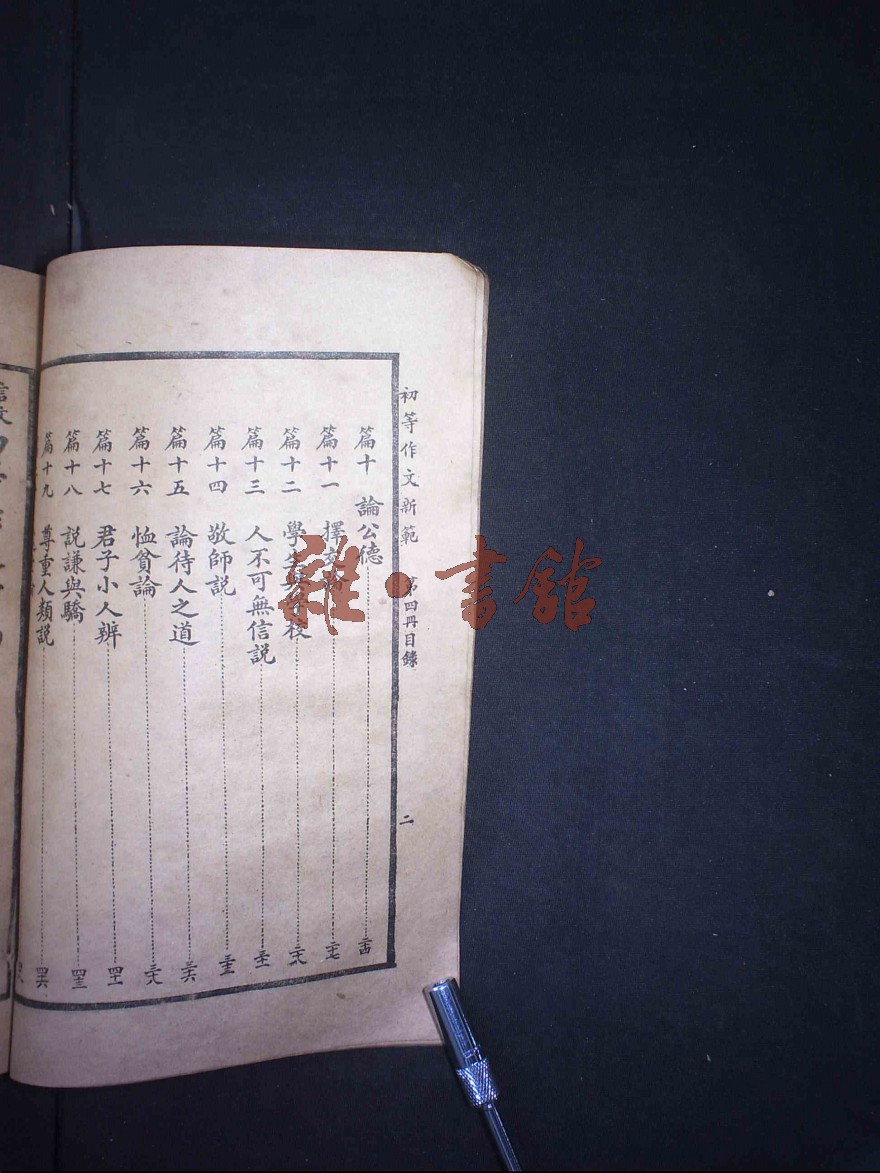 初等作文新範 第四冊目錄 二
篇十 論公德 二十四
篇十一 擇交 二十七
篇十二 學生與學校 二十八
篇十三 人不可無信説 三十一
篇十四 敬師説 三十三
篇十五 論待人之道 三十六
篇十六 恤貧論 三十八
篇十七 君子小人辨 四十一
篇十八 説謙與驕 四十三
篇十九 尊重人類説 四十六
雜·書館